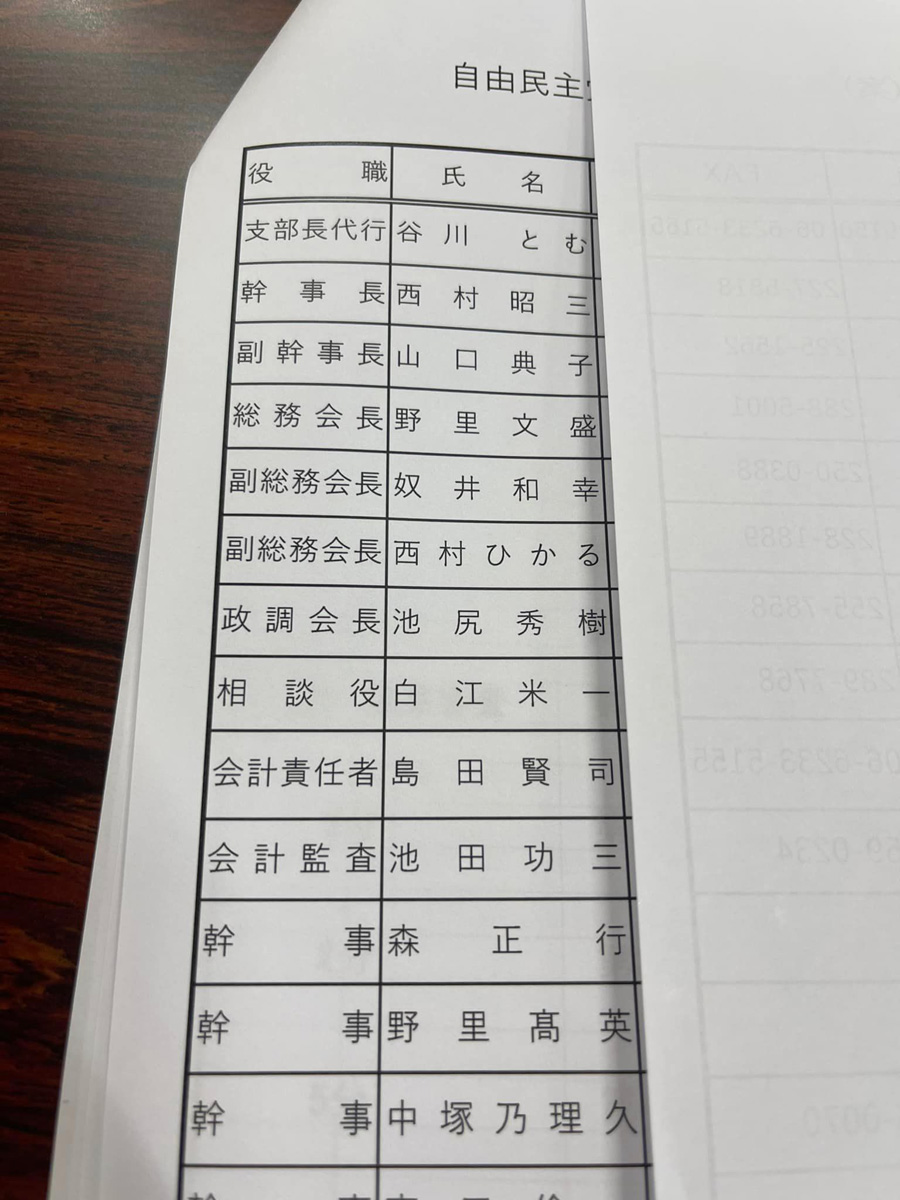 自由民主
役職 氏名
支部長代行 谷川とむ
幹事長 西村昭三
副幹事長 山口典子
総務会長 野里文盛
副総務会長 奴井和幸
副総務会長 西村ひかる
政調会長 池尻秀樹
相談役 白江米一
会計責任者 島田賢司
会計監査 池田功三
幹事 森正行
幹事 野里髙英
幹事 中塚乃理久
幹事